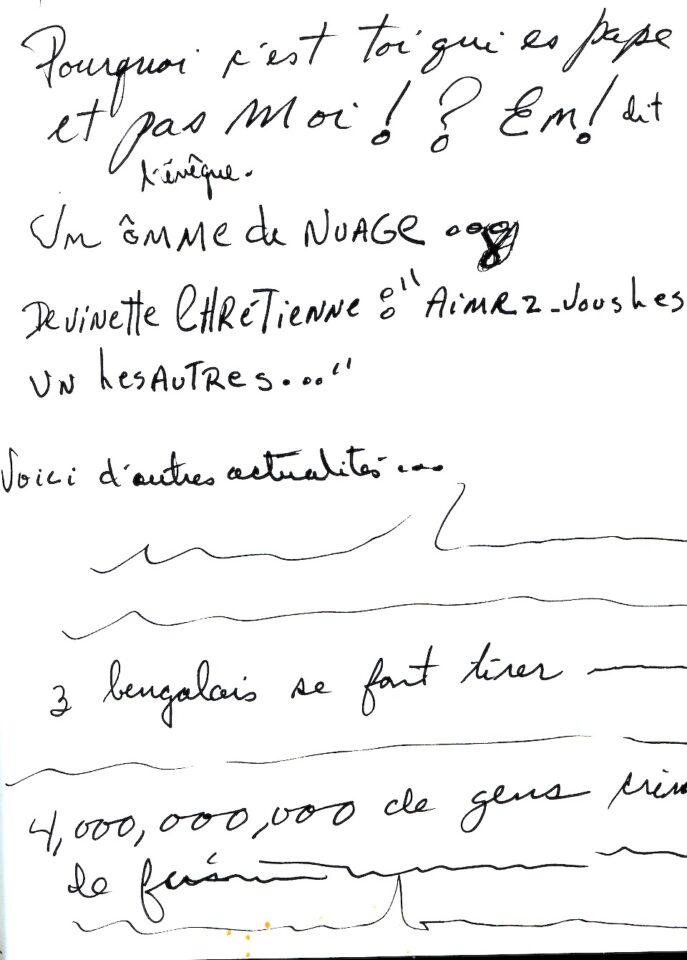 Pourquoi c'est toi qui es pape
et pas Moi!? Em! dit
l'évêque.
Un ômme de NUAGE ...
Devinette CHRÉTIENNE : "AiMRZ-vous les
UN les AUTRES..."
Voici d'autres actualités...
3 bengalais se font tirer
4,000,000,000 de gens
de